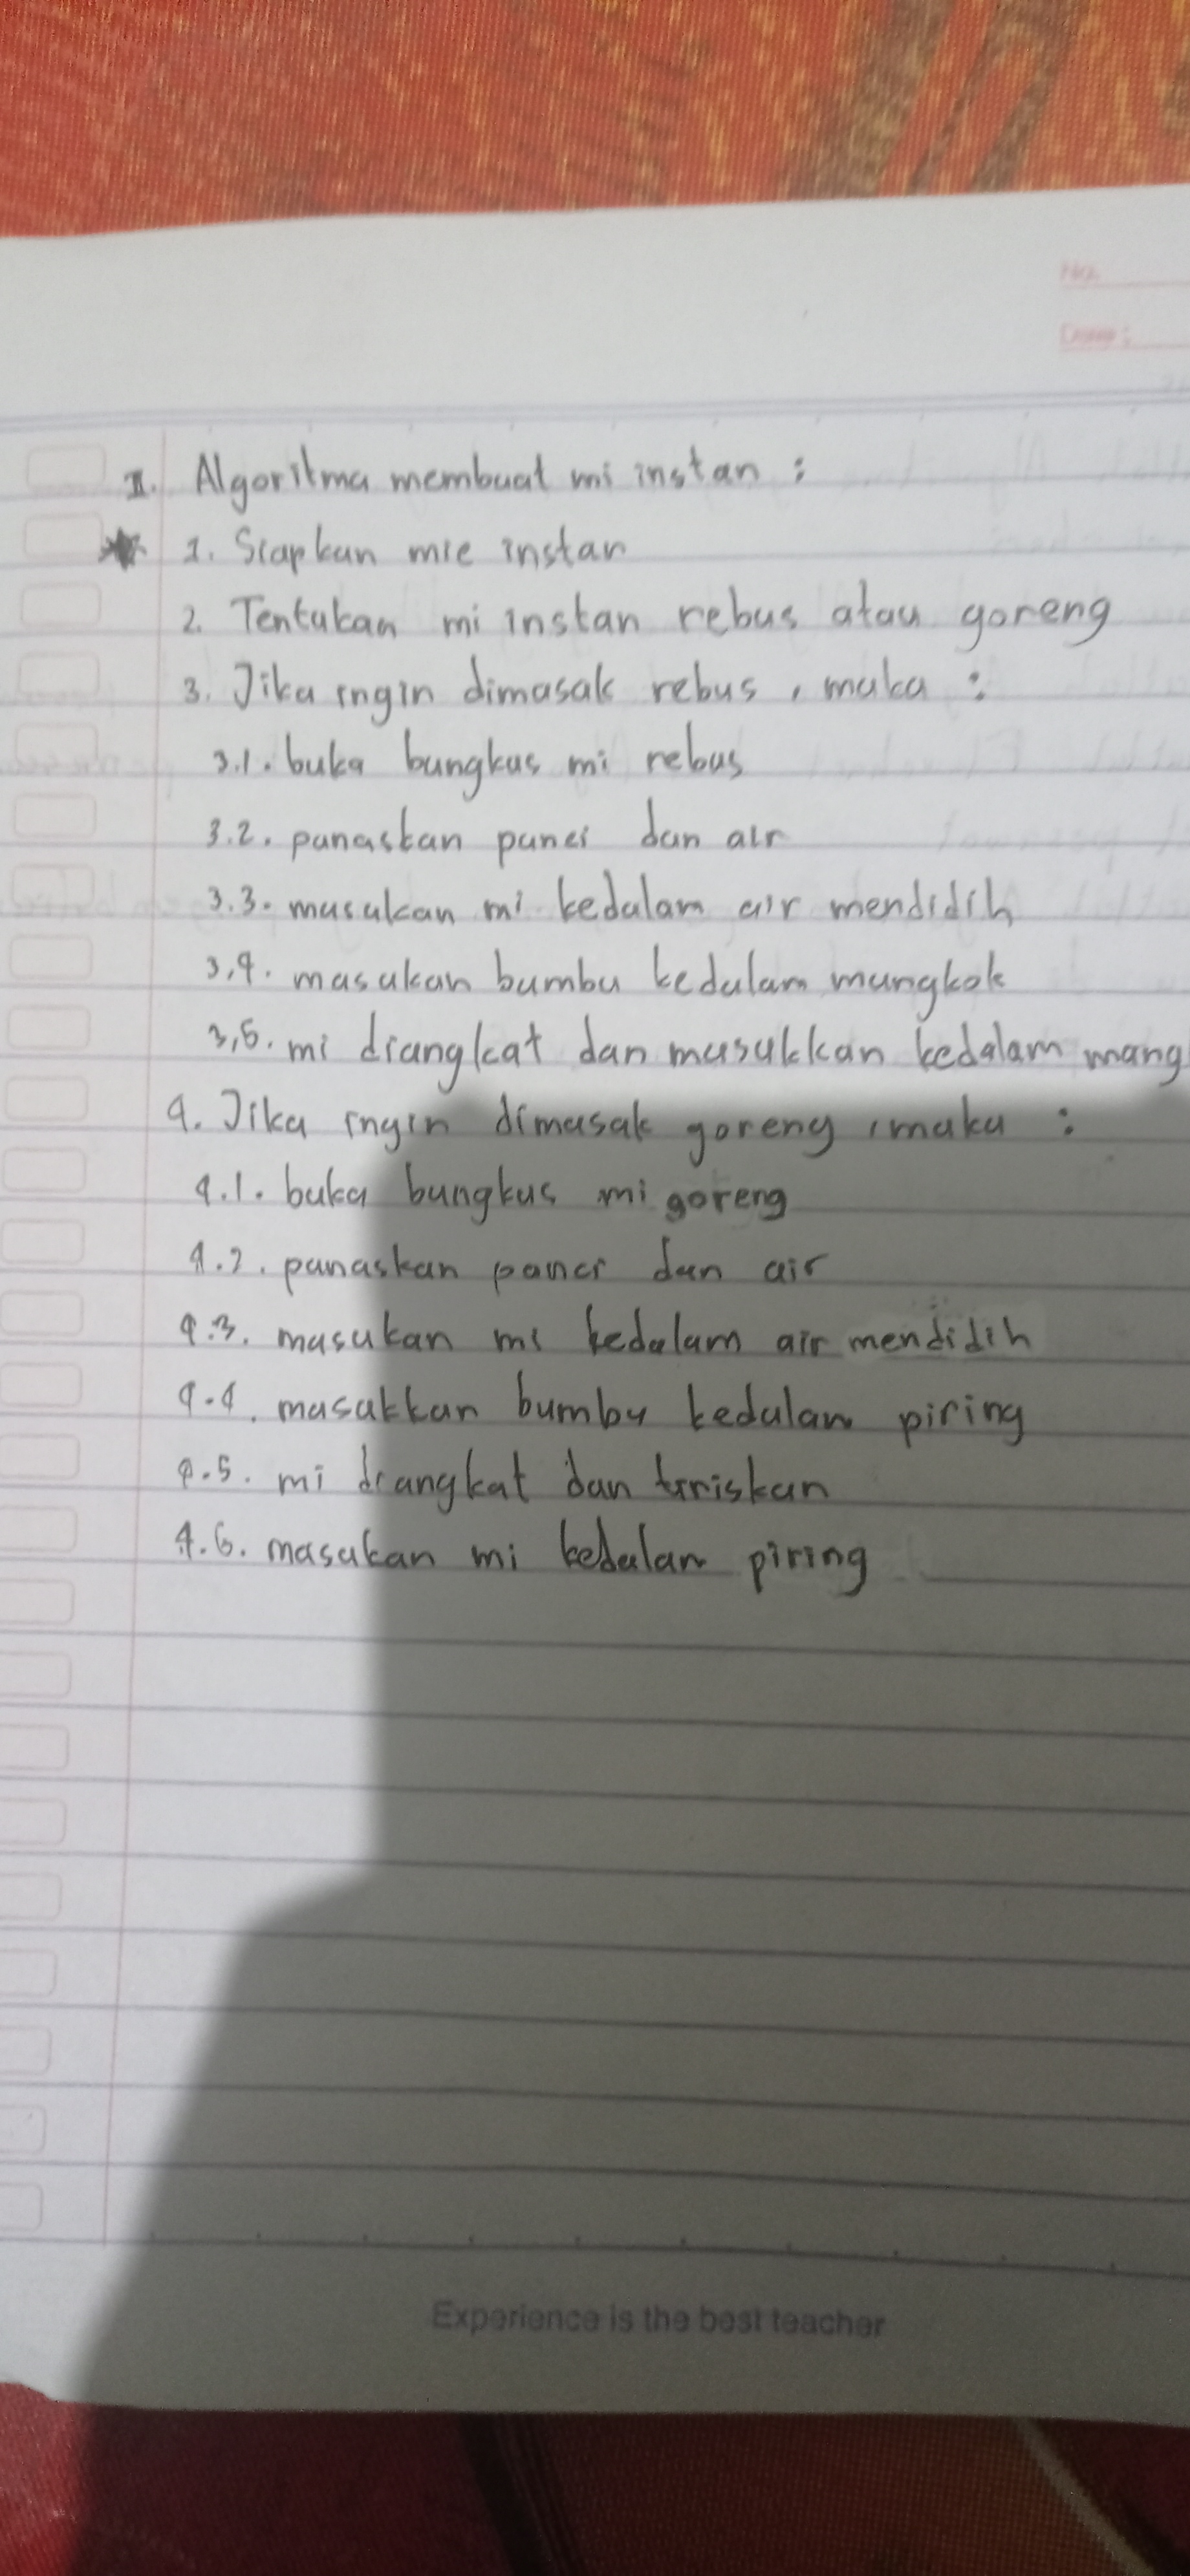 No.
Date :
II. Algoritma membuat mi instan :
1. Siapkan mie instan
2. Tentukan mi instan rebus atau goreng
3. Jika ingin dimasak rebus, maka :
3.1. buka bungkus mi rebus
3.2. panaskan panci dan air
3.3. masukan mi kedalam air mendidih
3,4. masukan bumbu kedalam mangkok
3,5. mi diangkat dan masukkan kedalam mang
4. Jika ingin dimasak goreng, maka :
4.1. buka bungkus mi goreng
4.2. panaskan panci dan air
4.3. masukan mi kedalam air mendidih
4.4. masukkan bumbu kedalam piring
4.5. mi diangkat dan tiriskan
4.6. masukan mi kedalam piring
Experience is the best teacher